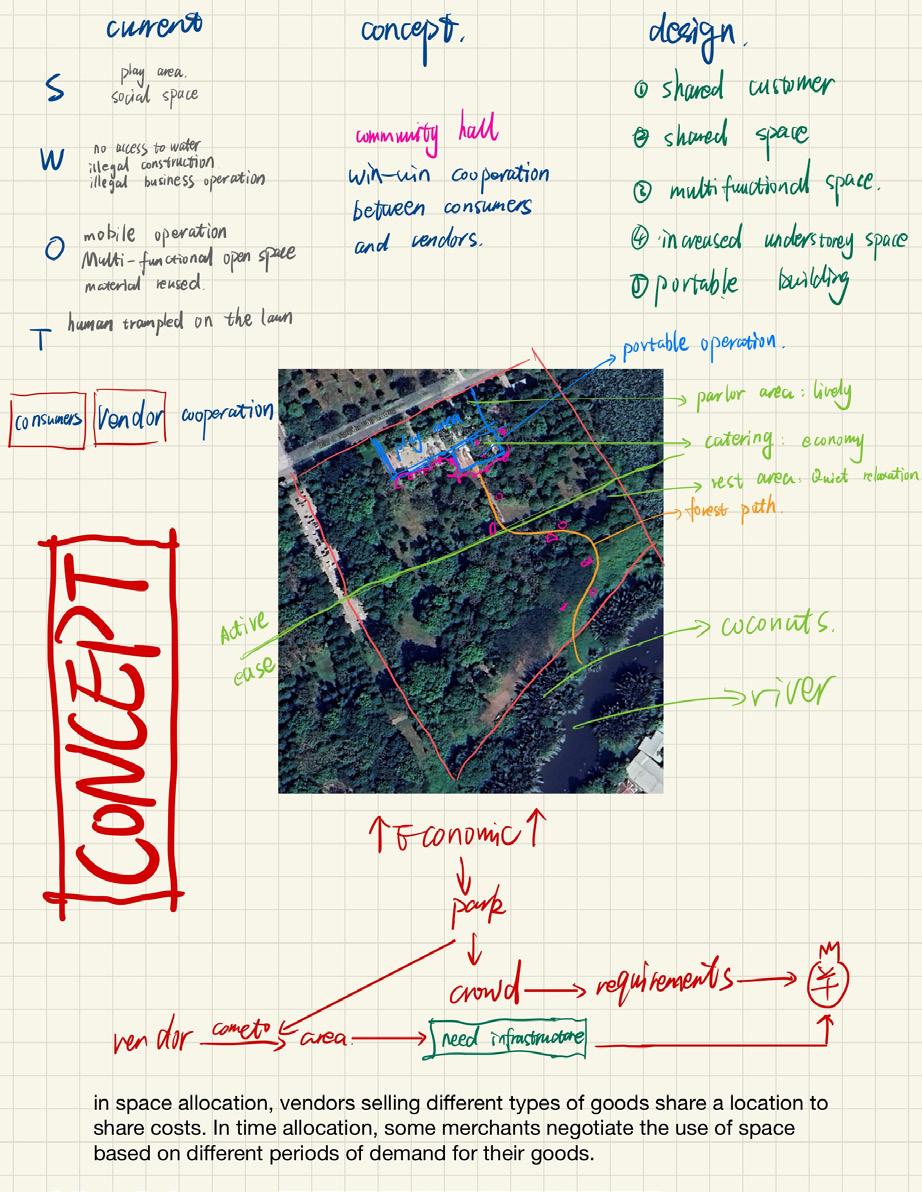 current
S
play area.
social space
W
no access to water
illegal construction
illegal business operation
O
mobile operation
Multi-functional open space
material reused.
T
human trampled on the lawn
consumers Vendor cooperation
concept.
community hall
win-win cooperation
between consumers
and vendors.
design.
① shared customer
② shared space
③ multifunctional space.
④ increased understorey space
⑤ portable building
portable operation.
parlor area: lively
catering: economy
rest area: Quiet relaxation
forest path.
play area
Active
ease
coconuts.
river
CONCEPT
↑ Economic ↑
park
crowd → requirements → ¥
vendor come to area → need infrastructure
in space allocation, vendors selling different types of goods share a location to
share costs. In time allocation, some merchants negotiate the use of space
based on different periods of demand for their goods.